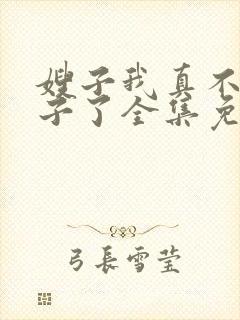 嫂子我真不
子了全集免
弓長雪莹